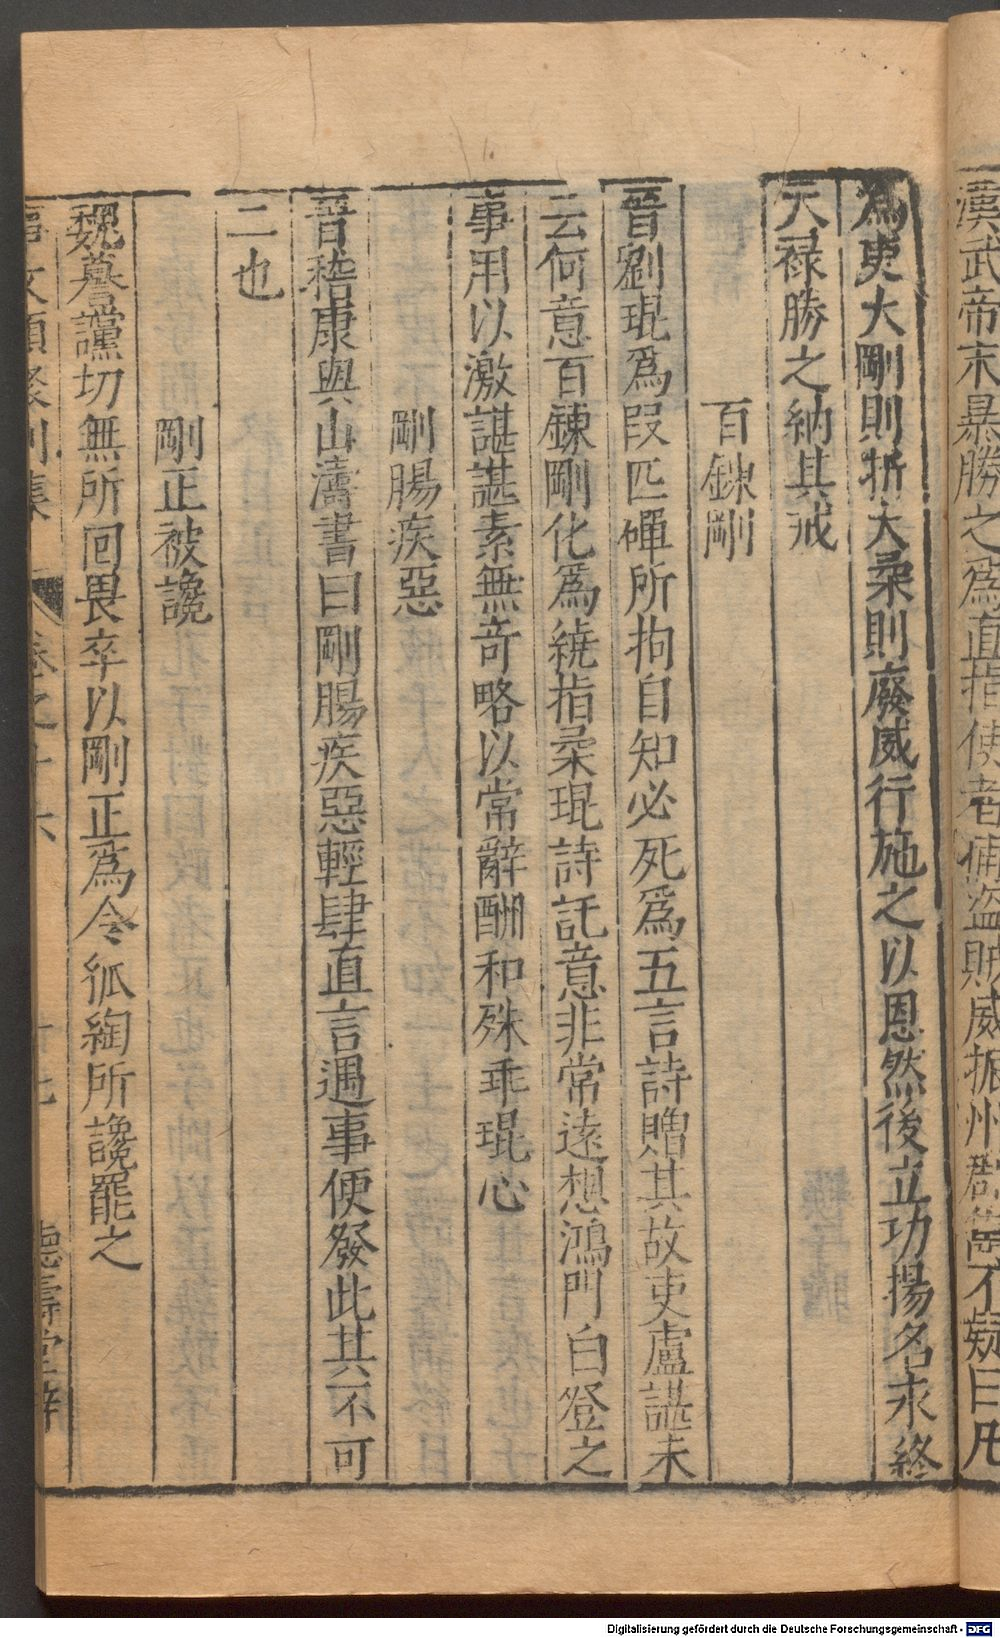 漢武帝末暴勝之爲直指使者捕盗賊威振州郡雋不疑曰凡
爲吏大剛則折大柔則廢威行施之以恩然後立功揚名永終
天祿勝之納其戒
百鍊剛
晉劉琨爲段匹磾所拘自知必死爲五言詩贈其故吏盧諶末
云何意百鍊剛化爲繞指柔琨詩託意非常遠想鴻門白登之
事用以激諶諶素無奇略以常辭酬和殊乖琨心
剛腸疾惡
晉嵇康與山濤書曰剛腸疾惡輕肆直言遇事便發此其不可
二也
剛正被讒
魏謩讜切無所囘畏卒以剛正爲令狐綯所讒罷之
事文類聚別集 卷之十六 十七 德壽堂梓
Digitalisierung gefördert durch die Deutsche Forschungsgemeinschaft - DFG